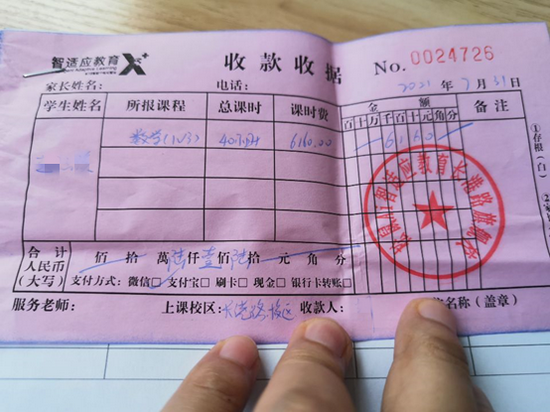 智适应教育 X+
收款收据
No. 0024726
家长姓名: 电话: 2021 年 7 月 31 日
学生姓名 所报课程 总课时 课时费 金额 备注
百 十 万 千 百 十 元 角 分
数学(1V3) 40小时 6160.00 6160
合计
人民币
(大写)
佰 拾 萬 陆 仟 壹 佰 陆 拾 元 角 分
支付方式: 微信□ 支付宝□ 刷卡□ 现金□ 银行卡转账□
服务老师: 上课校区: 长港路校区 收款人: 名称(盖章)
①存根(白)
智适应教育长港路旗舰